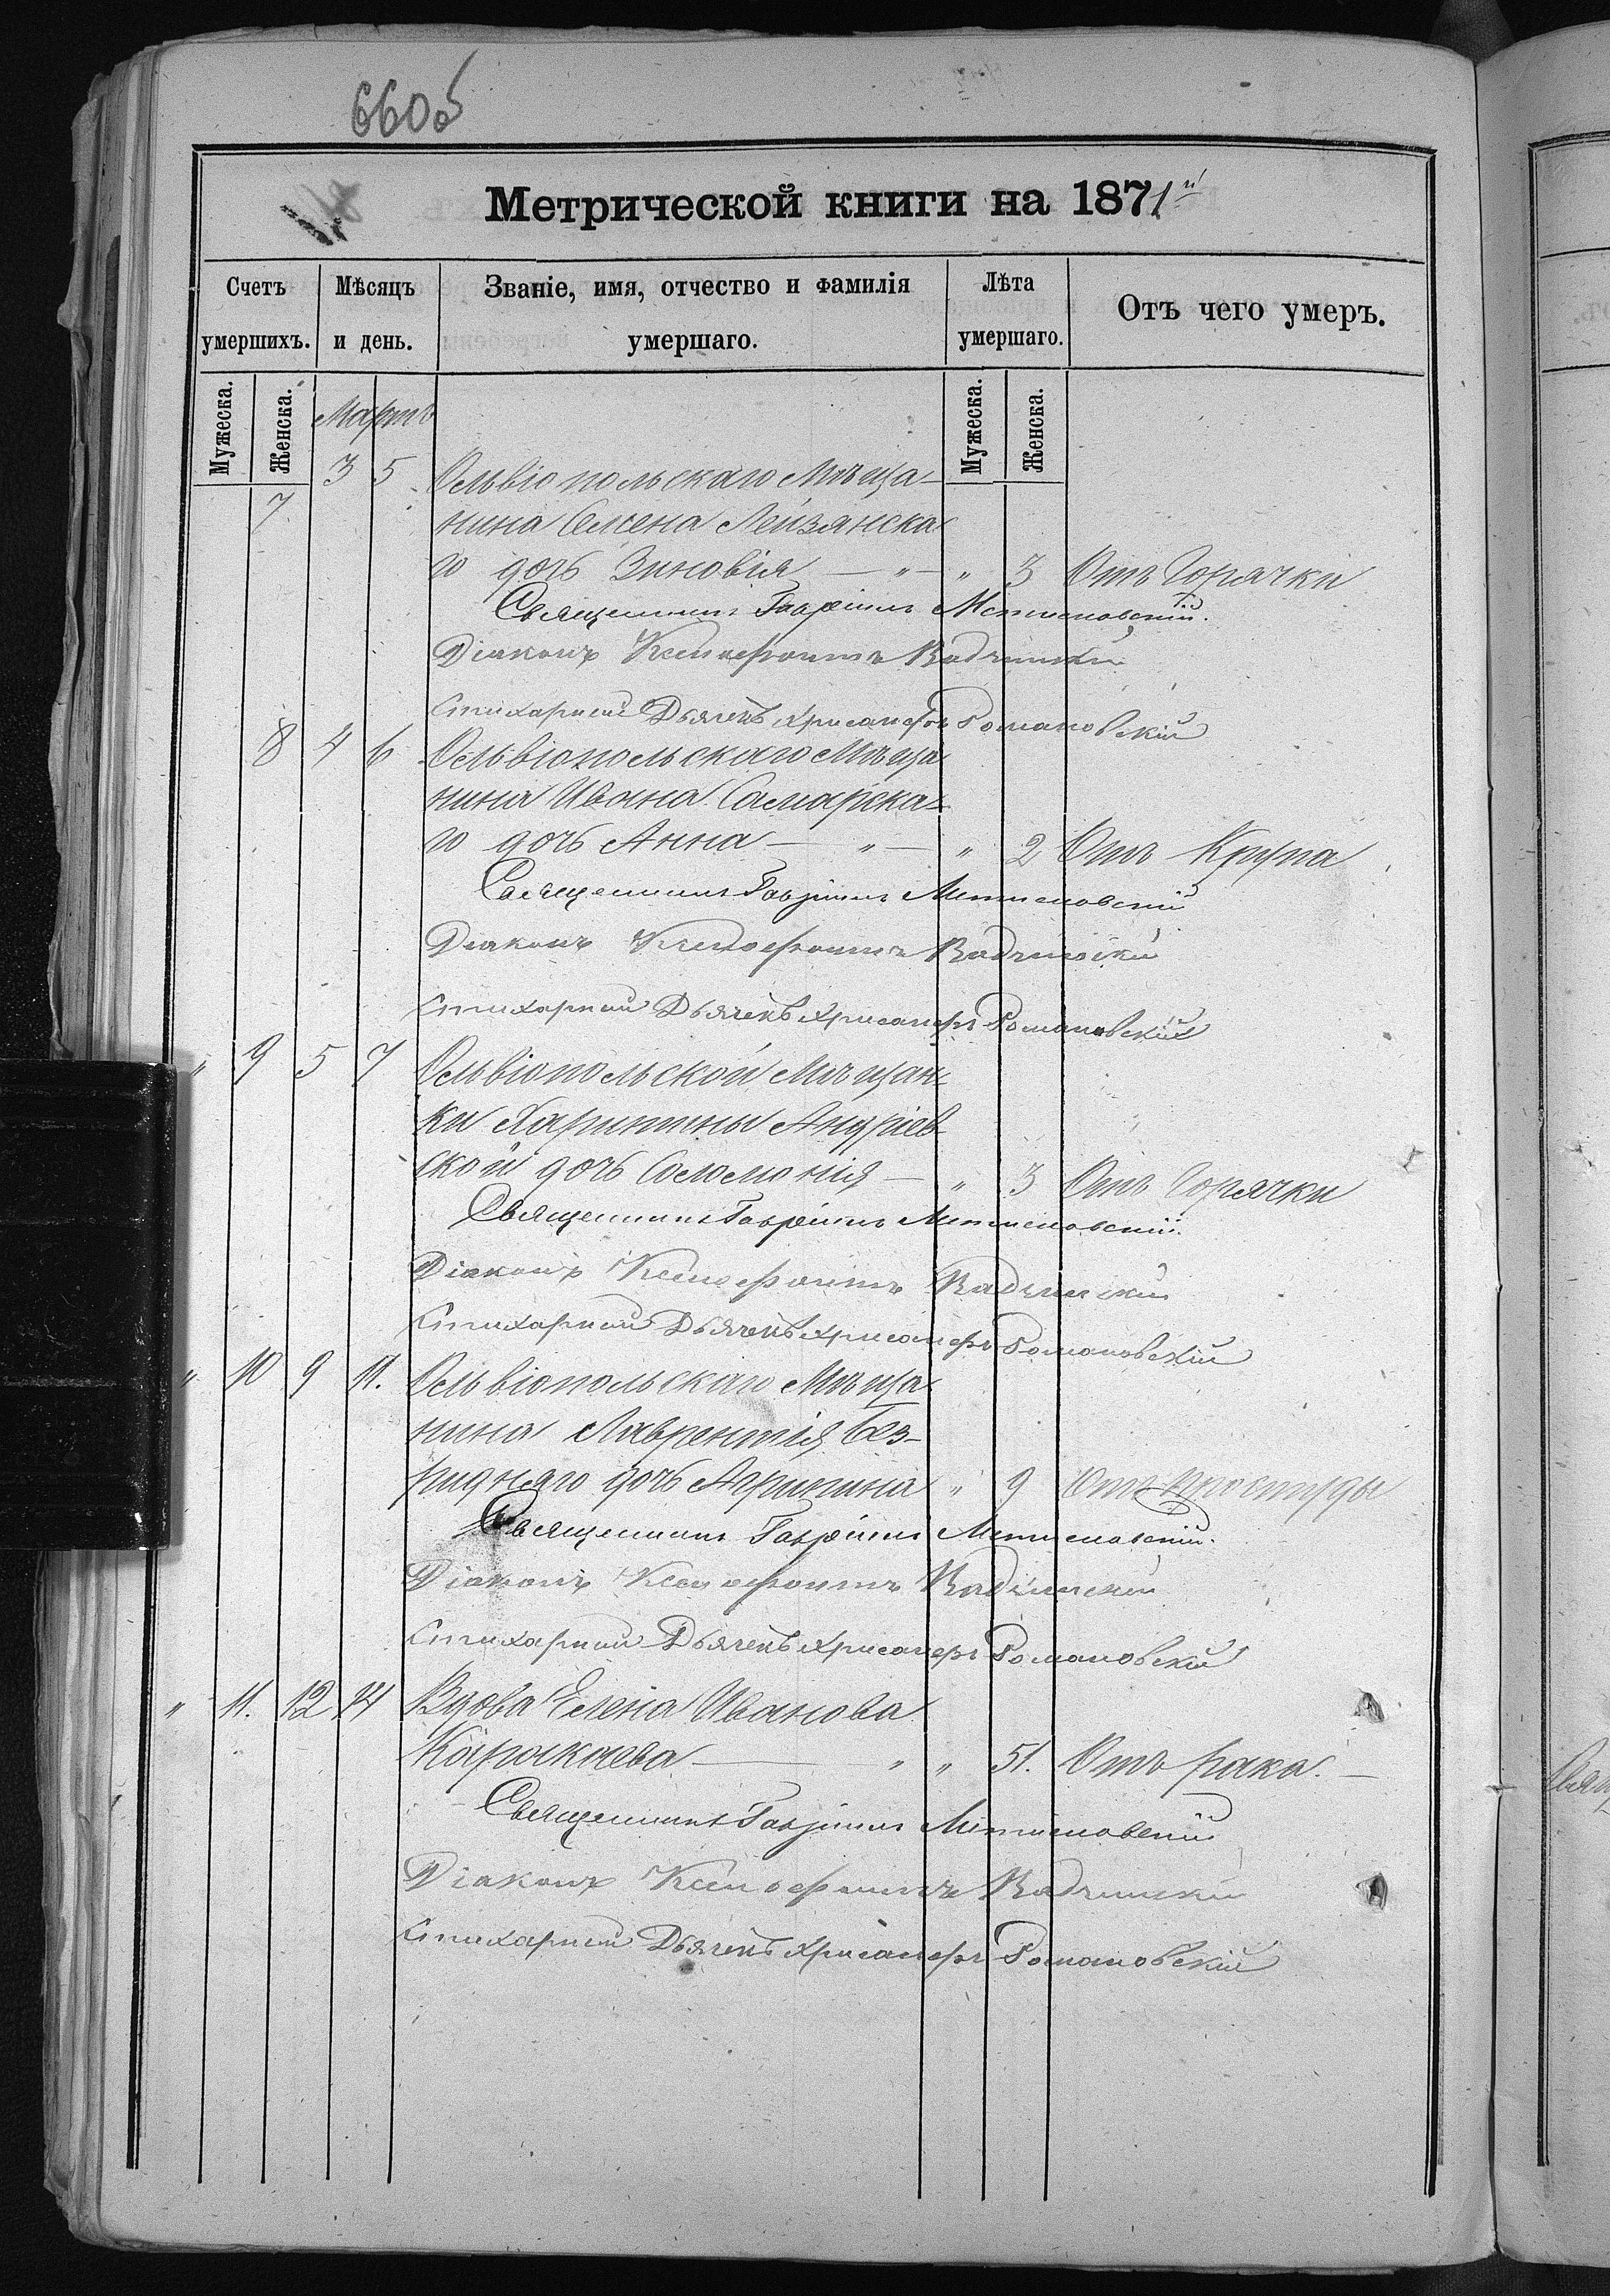 660б
Метрической книги на 1871й
Счетъ умершихъ.
Мѣсяцъ и день.
Званіе, имя, отчество и фамилія умершаго.
Лѣта умершаго.
Отъ чего умеръ.
Мужеска. Женска. Мартъ Мужеска. Женска.
7 3 5 Ольвіопольскаго Мѣща-
нина Семена
го дочь Зиновія — „ — „ 3 Отъ Горячки
Священникъ Гавріилъ Мстиславскій.
Діаконъ Ксенофонтъ
Стихарный Дьячекъ Хрисанфъ Романовскій
8 4 6 Ольвіопольскаго Мѣща-
нина Ивана Самарска-
го дочь Анна — „ — „ 2 Отъ Крупа
Священникъ Гавріилъ Мстиславскій
Діаконъ Ксенофонтъ
Стихарный Дьячекъ Хрисанфъ Романовскій
„ 9 5 7 Ольвіопольской Мѣщан-
ки Харитины Андріев-
ской дочь Соломонія — „ 3 Отъ Горячки
Священникъ Гавріилъ Мстиславскій.
Діаконъ Ксенофонтъ
Стихарный Дьячекъ Хрисанфъ Романовскій
„ 10 9 11. Ольвіопольскаго Мѣща-
нина Лаврентія Без-
ридняго дочь Агрипина „ 9 Отъ простуды
Священникъ Гавріилъ Мстиславскій.
Діаконъ Ксенофонтъ
Стихарный Дьячекъ Хрисанфъ Романовскій
„ 11. 12 14 Вдова Елена Иванова
Каракаева — „ „ 51. Отъ рака. —
Священникъ Гавріилъ Мстиславскій
Діаконъ Ксенофонтъ
Стихарный Дьячекъ Хрисанфъ Романовскій